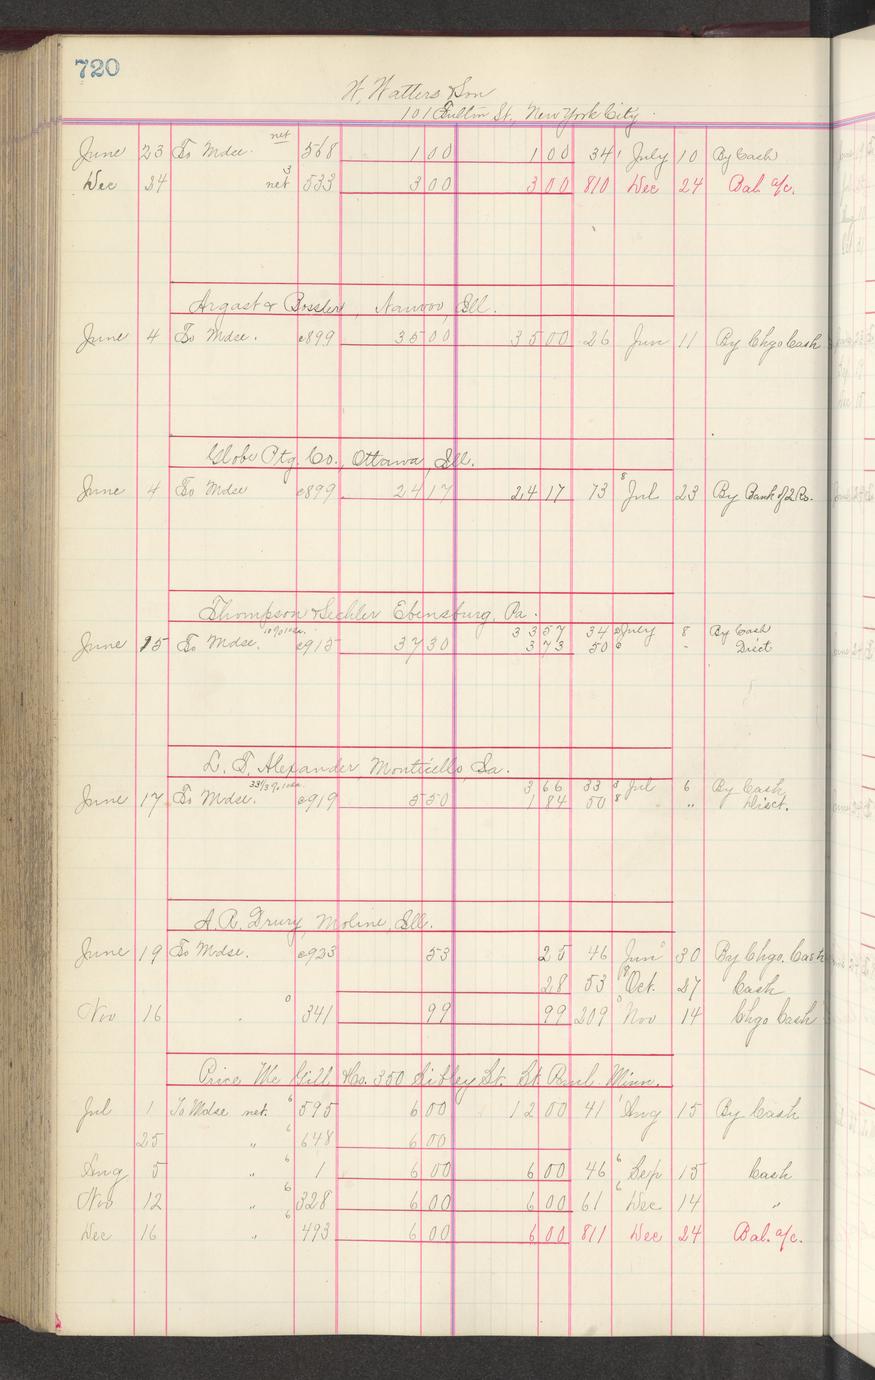 720
W. Watters & Son
101 Fulton St., New York City
June 23 To Mdse. net 568 1 00 1 00 34 1 July 10 By Cash
Dec 24 net 3 533 3 00 3 00 810 Dec 24 Bal. a/c.
Argast & Bossler, Nauvoo, Ill.
June 4 To Mdse. c899 35 00 35 00 26 Jun 11 By Chgo Cash
Globe Ptg. Co., Ottawa, Ill.
June 4 To Mdse c899 24 17 24 17 73 8 Jul 23 By Bank of 2 Rs.
Thompson & Sechler Ebensburg, Pa.
33 57 34 July 8 By Cash
June 15 To Mdse. 10% 10da. c915 37 30 3 73 50 6 " Disct
L. T. Alexander, Monticello, Ia.
3 66 33 8 Jul 6 By Cash
June 17 To Mdse. 33 1/3% 10da. c919 5 50 1 84 50 8 " Disct.
A. R. Drury, Moline, Ill.
June 19 To Mdse. c923 53 25 46 Jun 30 By Chgo. Cash
28 53 8 Oct. 27 Cash
Nov 16 " 0 341 99 99 209 0 Nov 14 Chgo Cash
Price McGill & Co. 350 Sibley St. St. Paul. Minn.
Jul 1 To Mdse net. 6 595 6 00 12 00 41 1 Aug 15 By Cash
25 " 6 648 6 00
Aug 5 " 6 1 6 00 6 00 46 6 Sep 15 Cash
Nov 12 " 6 328 6 00 6 00 61 6 Dec 14 "
Dec 16 " 6 493 6 00 6 00 811 Dec 24 Bal. a/c.